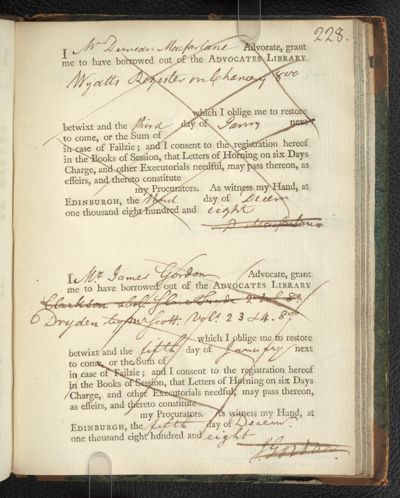 228.
I Mr Duncan Macfarlane Advocate, grant
me to have borrowed out of the ADVOCATES LIBRARY
Wyatts Register in Chancery 8vo
which I oblige me to restore
betwixt and the third day of Janry next
to come, or the Sum of
in case of Failzie; and I consent to the registration hereof
in the Books of Session, that Letters of Horning on six Days
Charge, and other Executorials needful, may pass thereon, as
effeirs, and thereto constitute
my Procurators. As witness my Hand, at
EDINBURGH, the third day of Decem
one thousand eight hundred and eight
D Macfarlane
I Mr James Gordon Advocate, grant
me to have borrowed out of the ADVOCATES LIBRARY
Clarkson abol. Slave Trade 2 vol 8o
Dryden by Scott. Vols. 2 3 & 4. 8vo
which I oblige me to restore
betwixt and the fifth day of January next
to come, or the Sum of
in case of Failzie; and I consent to the registration hereof
in the Books of Session, that Letters of Horning on six Days
Charge, and other Executorials needful, may pass thereon,
as effeirs, and thereto constitute
my Procurators. As witness my Hand, at
EDINBURGH, the fifth day of Decem.
one thousand eight hundred and eight
J Gordon